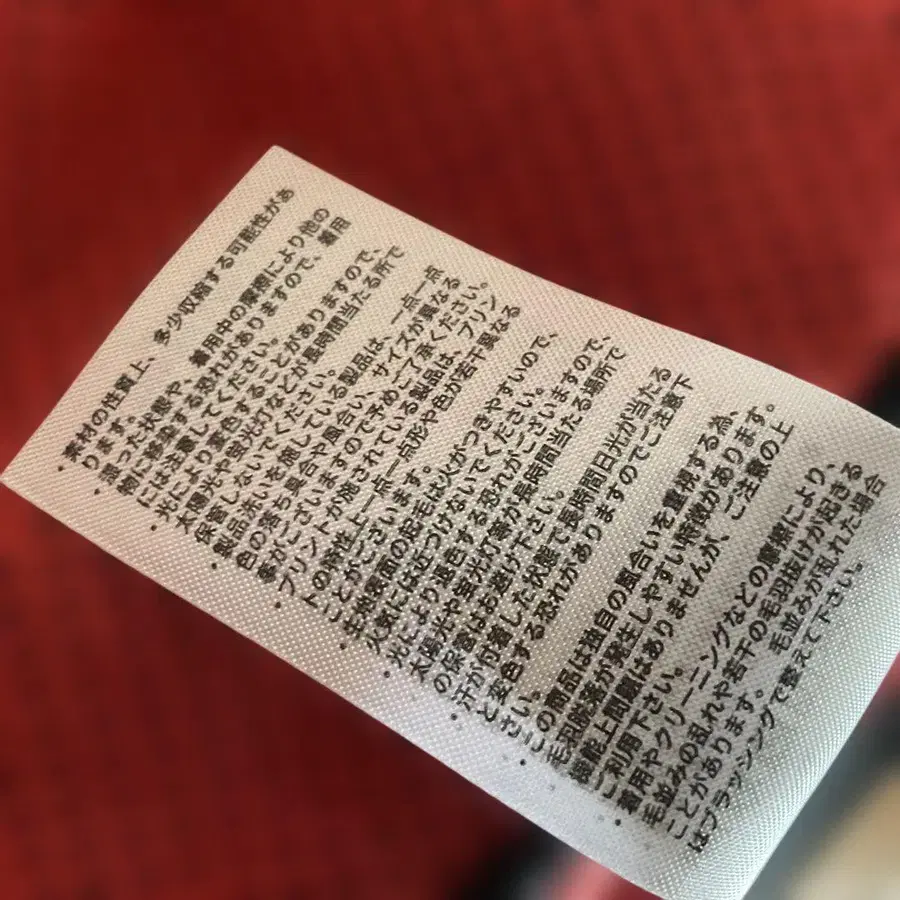 ・素材の性質上、多少収縮する可能性があ
ります。
・湿った状態や、着用中の摩擦により他の
物に移染する恐れがありますので、着用
には注意してください。
・光により変色することがありますので、
太陽光や蛍光灯などが長時間当たる所で
保管しないでください。
・製品洗いを施している製品は、一点一点
色の落ち具合や風合い、サイズが異なる
事がございますので予めご了承ください。
・プリントが施されている製品は、プリン
トの特性上一点一点形や色が若干異なる
ことがございます。
・生地表面の起毛は火がつきやすいので、
火気には近づけないでください。
・光により退色する恐れがございますので、
太陽光や蛍光灯等が長時間当たる場所で
の保管はお避け下さい。
・汗が付着した状態で長時間日光が当たる
と変色する恐れがありますのでご注意下
さい。
・この商品は独自の風合いを重視する為、
毛羽脱落が発生しやすい特徴があります。
機能上問題はありませんが、ご注意の上
ご利用下さい。
・着用やクリーニングなどの摩擦により、
毛並みの乱れや若干の毛羽抜けが起きる
ことがあります。毛並みが乱れた場合
はブラッシングで整えて下さい。